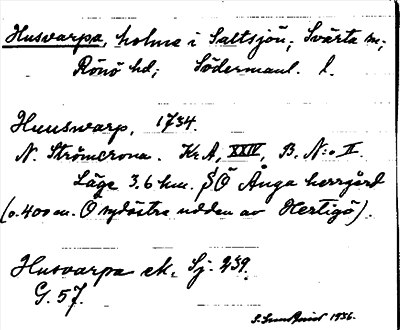 Husvarpa, holme i Saltsjön; Svärta sn;
Rönö hd; Södermanl. l.
Huuswarp, 1734.
N. Strömcrona. Kr A, XXIV, B. N:o II.
Läge 3.6 km. SÖ Ånga herrgård
(o. 400 m. O sydöstra udden av Hertigö).
Husvarpa ek. Sj. 239.
G. 57.
S. Sundquist 1936.